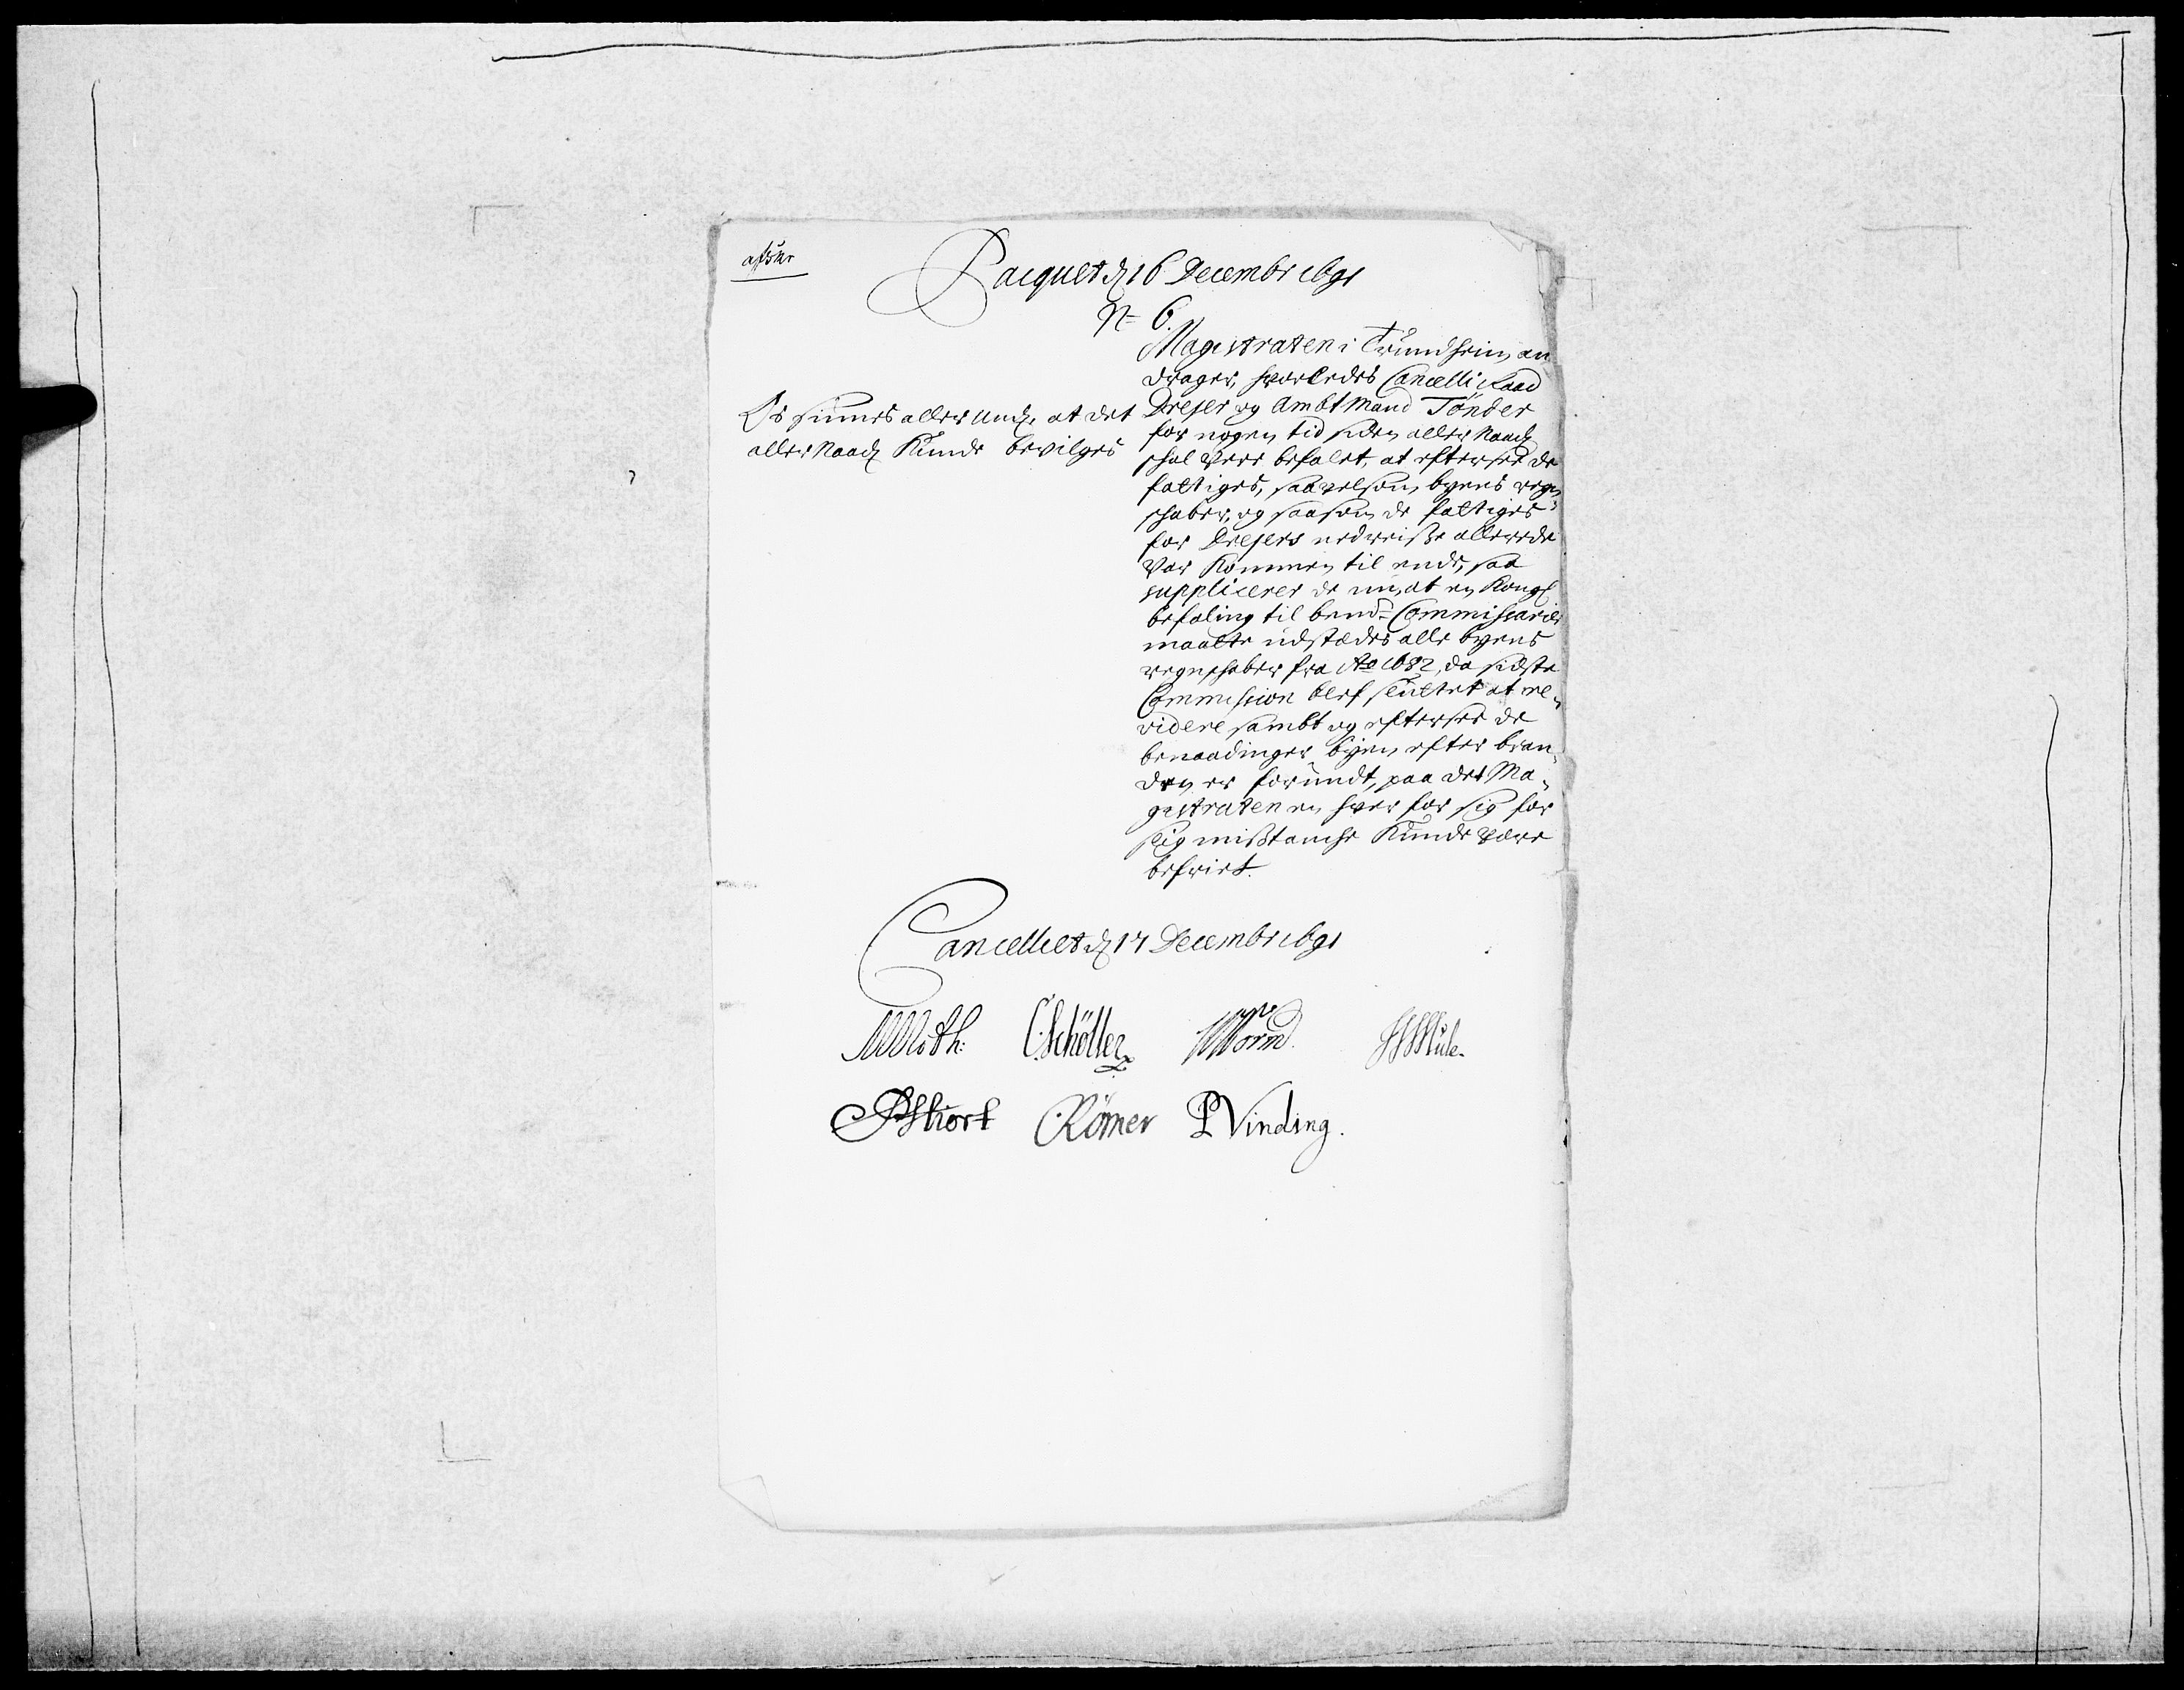 Pacquet d 16 Decembr 1691
No 6.
Magistraten i Trundheim an
drager, hvorledes Cancelli Raad
Dreyer og Ambtmand Tönder
for nogen tid siden aller Naad
schal vere befalet, at efterse de
fattiges, saavelsom byens regn
schaber, og saasom de fattiges
for Dreyers nedreise allerede
var kommen til ende, saa
supplicerer de nu, at en Kongl
befaling til bemd Commissarier
maatte udstædes alle byens
regnschaber fra Ao 1682, da sidste
Commission blef sluttet at re
videre sambt og efterse de
benaadinger byen efter bran
den er forundt, paa det Ma
gistraten en hver for sig for
slig mistanche kunde være
befriet.
Os siunes aller und. at det
aller Naad kunde bevilges
Cancelliet d 17 Decembr 1691
MMoth: CSchöller WWorm HHule.
Römer PVinding.